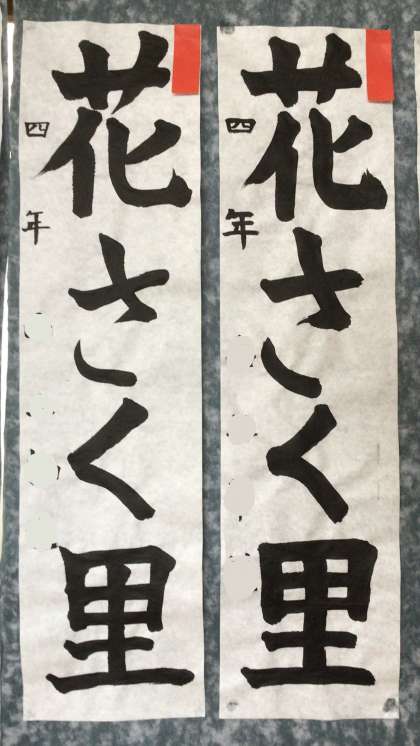 花さく里
四年
花さく里
四年